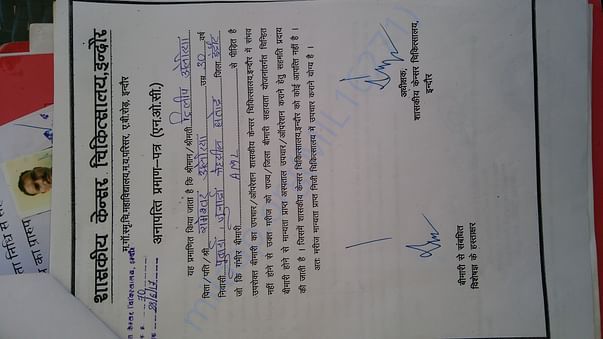 शासकीय केन्सर चिकित्सालय, इन्दौर
म.गाँ.स्मृ.चि.महाविद्यालय,म.य.परिसर, ए.बी.रोड़, इन्दौर
अनापत्ति प्रमाण–पत्र (एन.ओ.सी.)
यह प्रमाणित किया जाता है कि श्रीमान/श्रीमती दिलीप उम्र 30 वर्ष
पिता/पति/श्री रामबगस
निवासी जिला इन्दौर
जो कि गंभीर बीमारी AML से पीड़ित है
उपरोक्त बीमारी का उपचार/ऑपरेशन शासकीय केन्सर चिकित्सालय,इन्दौर में संभव
नहीं होने से उक्त मरीज को राज्य/जिला बीमारी सहायता योजनांतर्गत चिन्हित
बीमारी होने से मान्यता प्राप्त अस्पताल उपचार/ऑपरेशन कराने हेतु सहमति प्रदाय
की जाती है । जिसमें शासकीय केन्सर चिकित्सालय,इन्दौर को कोई आपत्ति नहीं है ।
अतः मरीज मान्यता प्राप्त निजी चिकित्सालय में उपचार कराने योग्य है ।
बीमारी से संबंधित
विशेषज्ञ के हस्ताक्षर
अधीक्षक,
शासकीय केन्सर चिकित्सालय,
इन्दौर